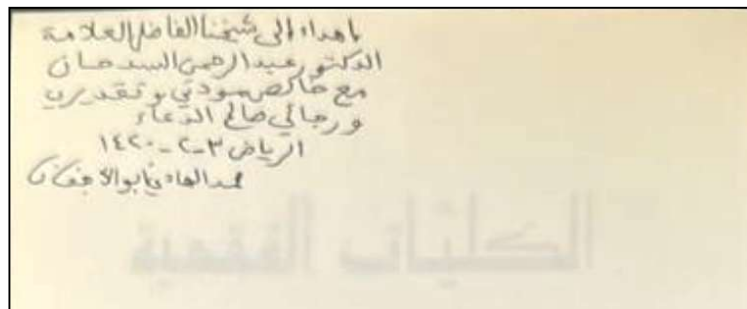 بإهداء إلى شيخنا الفاضل العلامة
الدكتور عبدالرحمن السدحان
مع خالص مودتي وتقديري
ورجائي صالح الدعاء
الرياض ٣-٢-١٤٢٠
محمد الهادي أبو الأجفان
الكليات الفقهية